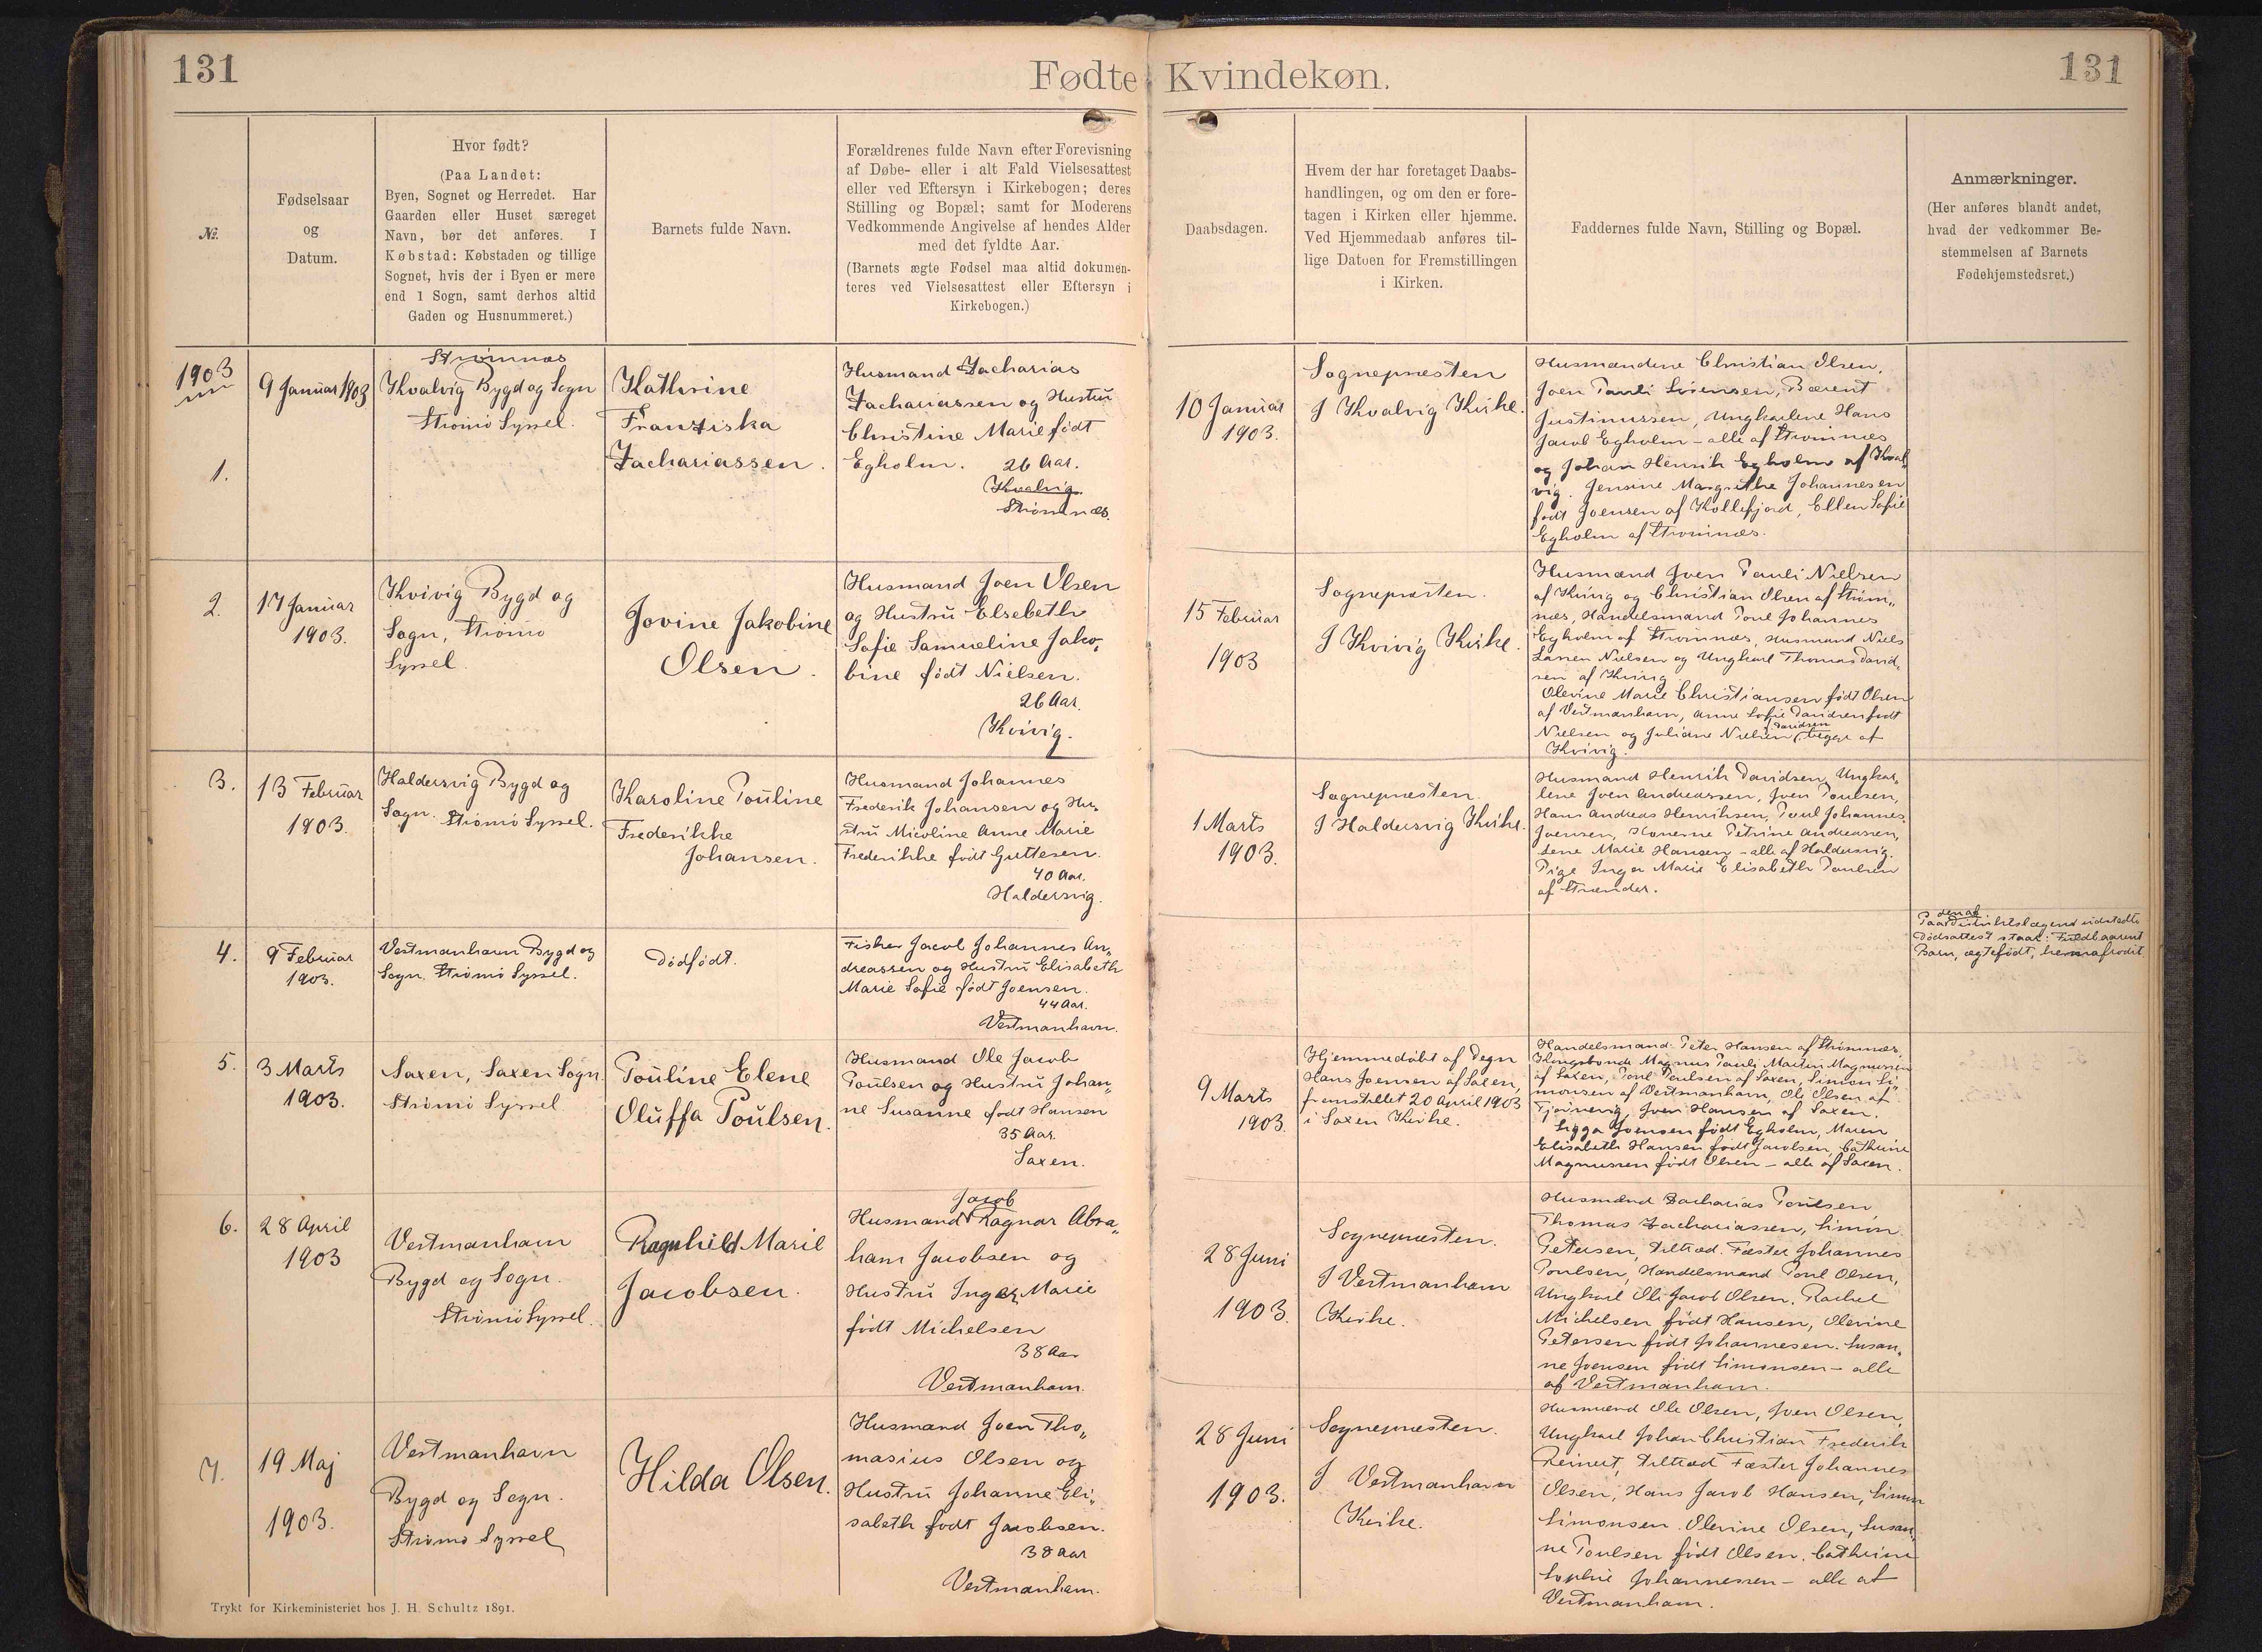 131
Fødte Kvindekøn.
131
№.
Fødselsaar
og
Datum.
Hvor født?
(Paa Landet:
Byen, Sognet og Herredet. Har
Gaarden eller Huset særeget
Navn, bør det anføres. I
Købstad: Købstaden og tillige
Sognet, hvis der i Byen er mere
end 1 Sogn, samt derhos altid
Gaden og Husnummeret.)
Barnets fulde Navn.
Forældrenes fulde Navn efter Forevisning
af Døbe- eller i alt Fald Vielsesattest
eller ved Eftersyn i Kirkebogen; deres
Stilling og Bopæl; samt for Moderens
Vedkommende Angivelse af hendes Alder
med det fyldte Aar.
(Barnets ægte Fødsel maa altid dokumen-
teres ved Vielsesattest eller Eftersyn i
Kirkebogen.)
Daabsdagen.
Hvem der har foretaget Daabs-
handlingen, og om den er fore-
tagen i Kirken eller hjemme.
Ved Hjemmedaab anføres til-
lige Datoen for Fremstillingen
i Kirken.
Faddernes fulde Navn, Stilling og Bopæl.
Anmærkninger.
(Her anføres blandt andet,
hvad der vedkommer Be-
stemmelsen af Barnets
Fødehjemstedsret.)
1903
1.
9 Januar 1903
Strømnæs
Kvalvig Bygd og Sogn
Strømø Syssel.
Kathrine
Franziska
Zachariassen.
Husmand Zacharias
Zachariassen og Hustru
Christine Marie født
Egholm. 26 Aar.
Kvalvig.
Strømnæs.
10 Januar
1903.
Sognepræsten
I Kvalvig Kirke.
Husmændene Christian Olsen,
Joen Pauli Sørensen, Bærent
Justinussen, Ungkarlene Hans
Jacob Egholm – alle af Strømnæs
og Johan Henrik Egholm af Kval„
vig. Jensine Margrethe Johannesen
født Joensen af Kollefjord, Ellen Sofie
Egholm af Strømnæs.
2.
17 Januar
1903.
Kvivig Bygd og
Sogn, Strømø
Syssel.
Jovine Jakobine
Olsen.
Husmand Joen Olsen
og Hustru Elsebeth
Sofie Samueline Jako„
bine født Nielsen.
26 Aar.
Kvivig.
15 Februar
1903
Sognepræsten.
I Kvivig Kirke.
Husmænd Joen Pauli Nielsen
af Kvivig og Christian Olsen af Strøm„
næs, Handelsmand Poul Johannes
Egholm af Strømnæs, Husmand Niels
Larsen Nielsen og Ungkarl Thomas David„
sen af Kvivig
Olevine Marie Christiansen født Olsen
af Vestmanhavn, Anne Sofie Davidsen født
Nielsen og Juliane Nielsen f. Davidsen, begge af
Kvivig.
3.
13 Februar
1903.
Haldersvig Bygd og
Sogn. Strømø Syssel.
Karoline Pouline
Frederikke
Johansen.
Husmand Johannes
Frederik Johansen og Hu„
stru Nicoline Anne Marie
Frederikke født Guttesen.
40 Aar.
Haldersvig.
1 Marts
1903.
Sognepræsten.
I Haldersvig Kirke.
Husmand Henrik Davidsen, Ungkar„
lene Joen Andreassen, Joen Poulsen,
Hans Andreas Henriksen, Poul Johannes
Joensen, Konerne Petrine Andreassen,
Lene Marie Hansen – alle af Haldersvig.
Pige Inger Marie Elisabeth Poulsen
af Strænder.
4.
9 Februar
1903.
Vestmanhavn Bygd og
Sogn. Strømø Syssel.
Dødfødt.
Fisker Jacob Johannes An„
dreassen og Hustru Elisabeth
Marie Sofie født Joensen.
44 Aar.
Vestmanhavn.
Paa den af Distriktslægen udstedte
Dødsattest staar: Fuldbaarent
Barn, ægtefødt, hermafrodit.
5.
3 Marts
1903.
Saxen, Saxen Sogn.
Strømø Syssel
Pouline Elene
Oluffa Poulsen.
Husmand Ole Jacob
Poulsen og Hustru Johan„
ne Susanne født Hansen
35 Aar.
Saxen.
9 Marts
1903.
Hjemmedøbt af Degn
Hans Joensen af Saxen,
fremstillet 20 April 1903
i Saxen Kirke.
Handelsmand Peter Hansen af Strømnæs,
Kongsbonde Magnus Pauli Martin Magnussen
af Saxen, Poul Poulsen af Saxen, Simon Si„
monsen af Vestmanhavn, Ole Olsen af
Tjørnevig, Joen Hansen af Saxen.
Sigga Joensen født Egholm, Maren
Elisabeth Hansen født Jacobsen, Cathrine
Magnussen født Olsen – alle af Saxen.
6.
28 April
1903
Vestmanhavn
Bygd og Sogn.
Strømø Syssel.
Ragnhild Marie
Jacobsen.
Jacob
Husmand Ragnar Abra„
ham Jacobsen og
Hustru Inger Marie
født Michelsen
38 Aar
Vestmanhavn.
28 Juni
1903.
Sognepræsten.
I Vestmanhavn
Kirke.
Husmænd Zacharias Poulsen
Thomas Zachariassen, Simon
Petersen, Tiltræd. Fæster Johannes
Poulsen, Handelsmand Poul Olsen,
Ungkarl Ole Jacob Olsen. Rachel
Michelsen født Hansen, Olevine
Petersen født Johannesen. Susan„
ne Joensen født Simonsen – alle
af Vestmanhavn.
7.
19 Maj
1903.
Vestmanhavn
Bygd og Sogn.
Strømø Syssel
Hilda Olsen.
Husmand Joen Tho„
masius Olsen og
Hustru Johanne Eli„
sabeth født Jacobsen.
38 Aar
Vestmanhavn.
28 Juni
1903.
Sognepræsten.
I Vestmanhavn
Kirke.
Husmænd Ole Olsen, Joen Olsen,
Ungkarl Johan Christian Frederik
Reinert, Tiltræd Fæster Johannes
Olsen, Hans Jacob Hansen, Simon
Simonsen. Olevine Olsen, Susan„
ne Poulsen født Olsen. Cathrine
Sophie Johannessen – alle af
Vestmanhavn.
Trykt for Kirkeministeriet hos J. H. Schultz 1891.